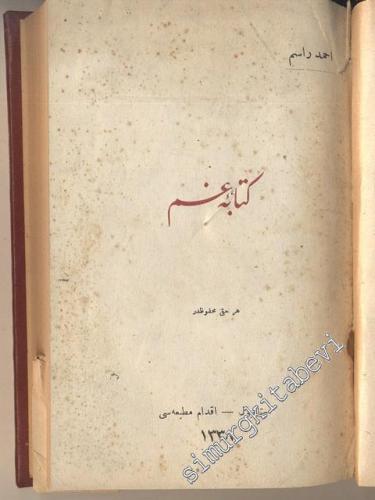 احمد راسم
كتابهٔ غم
هر حق محفوظدر
— اقدام مطبعه‌سی
simurgkitabevi